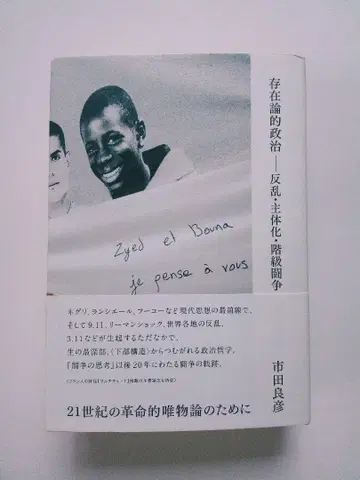 存在論的政治──反乱・主体化・階級闘争
市田良彦
Zyed et Bouna
je pense à vous
ネグリ、ランシエール、フーコーなど現代思想の最前線で、
そして9.11、リーマンショック、世界各地の反乱、
3.11などが生起するただなかで、
生の最深部、〈下部構造〉からつむがれる政治哲学。
『闘争の思考』以後20年にわたる闘争の軌跡。
21世紀の革命的唯物論のために